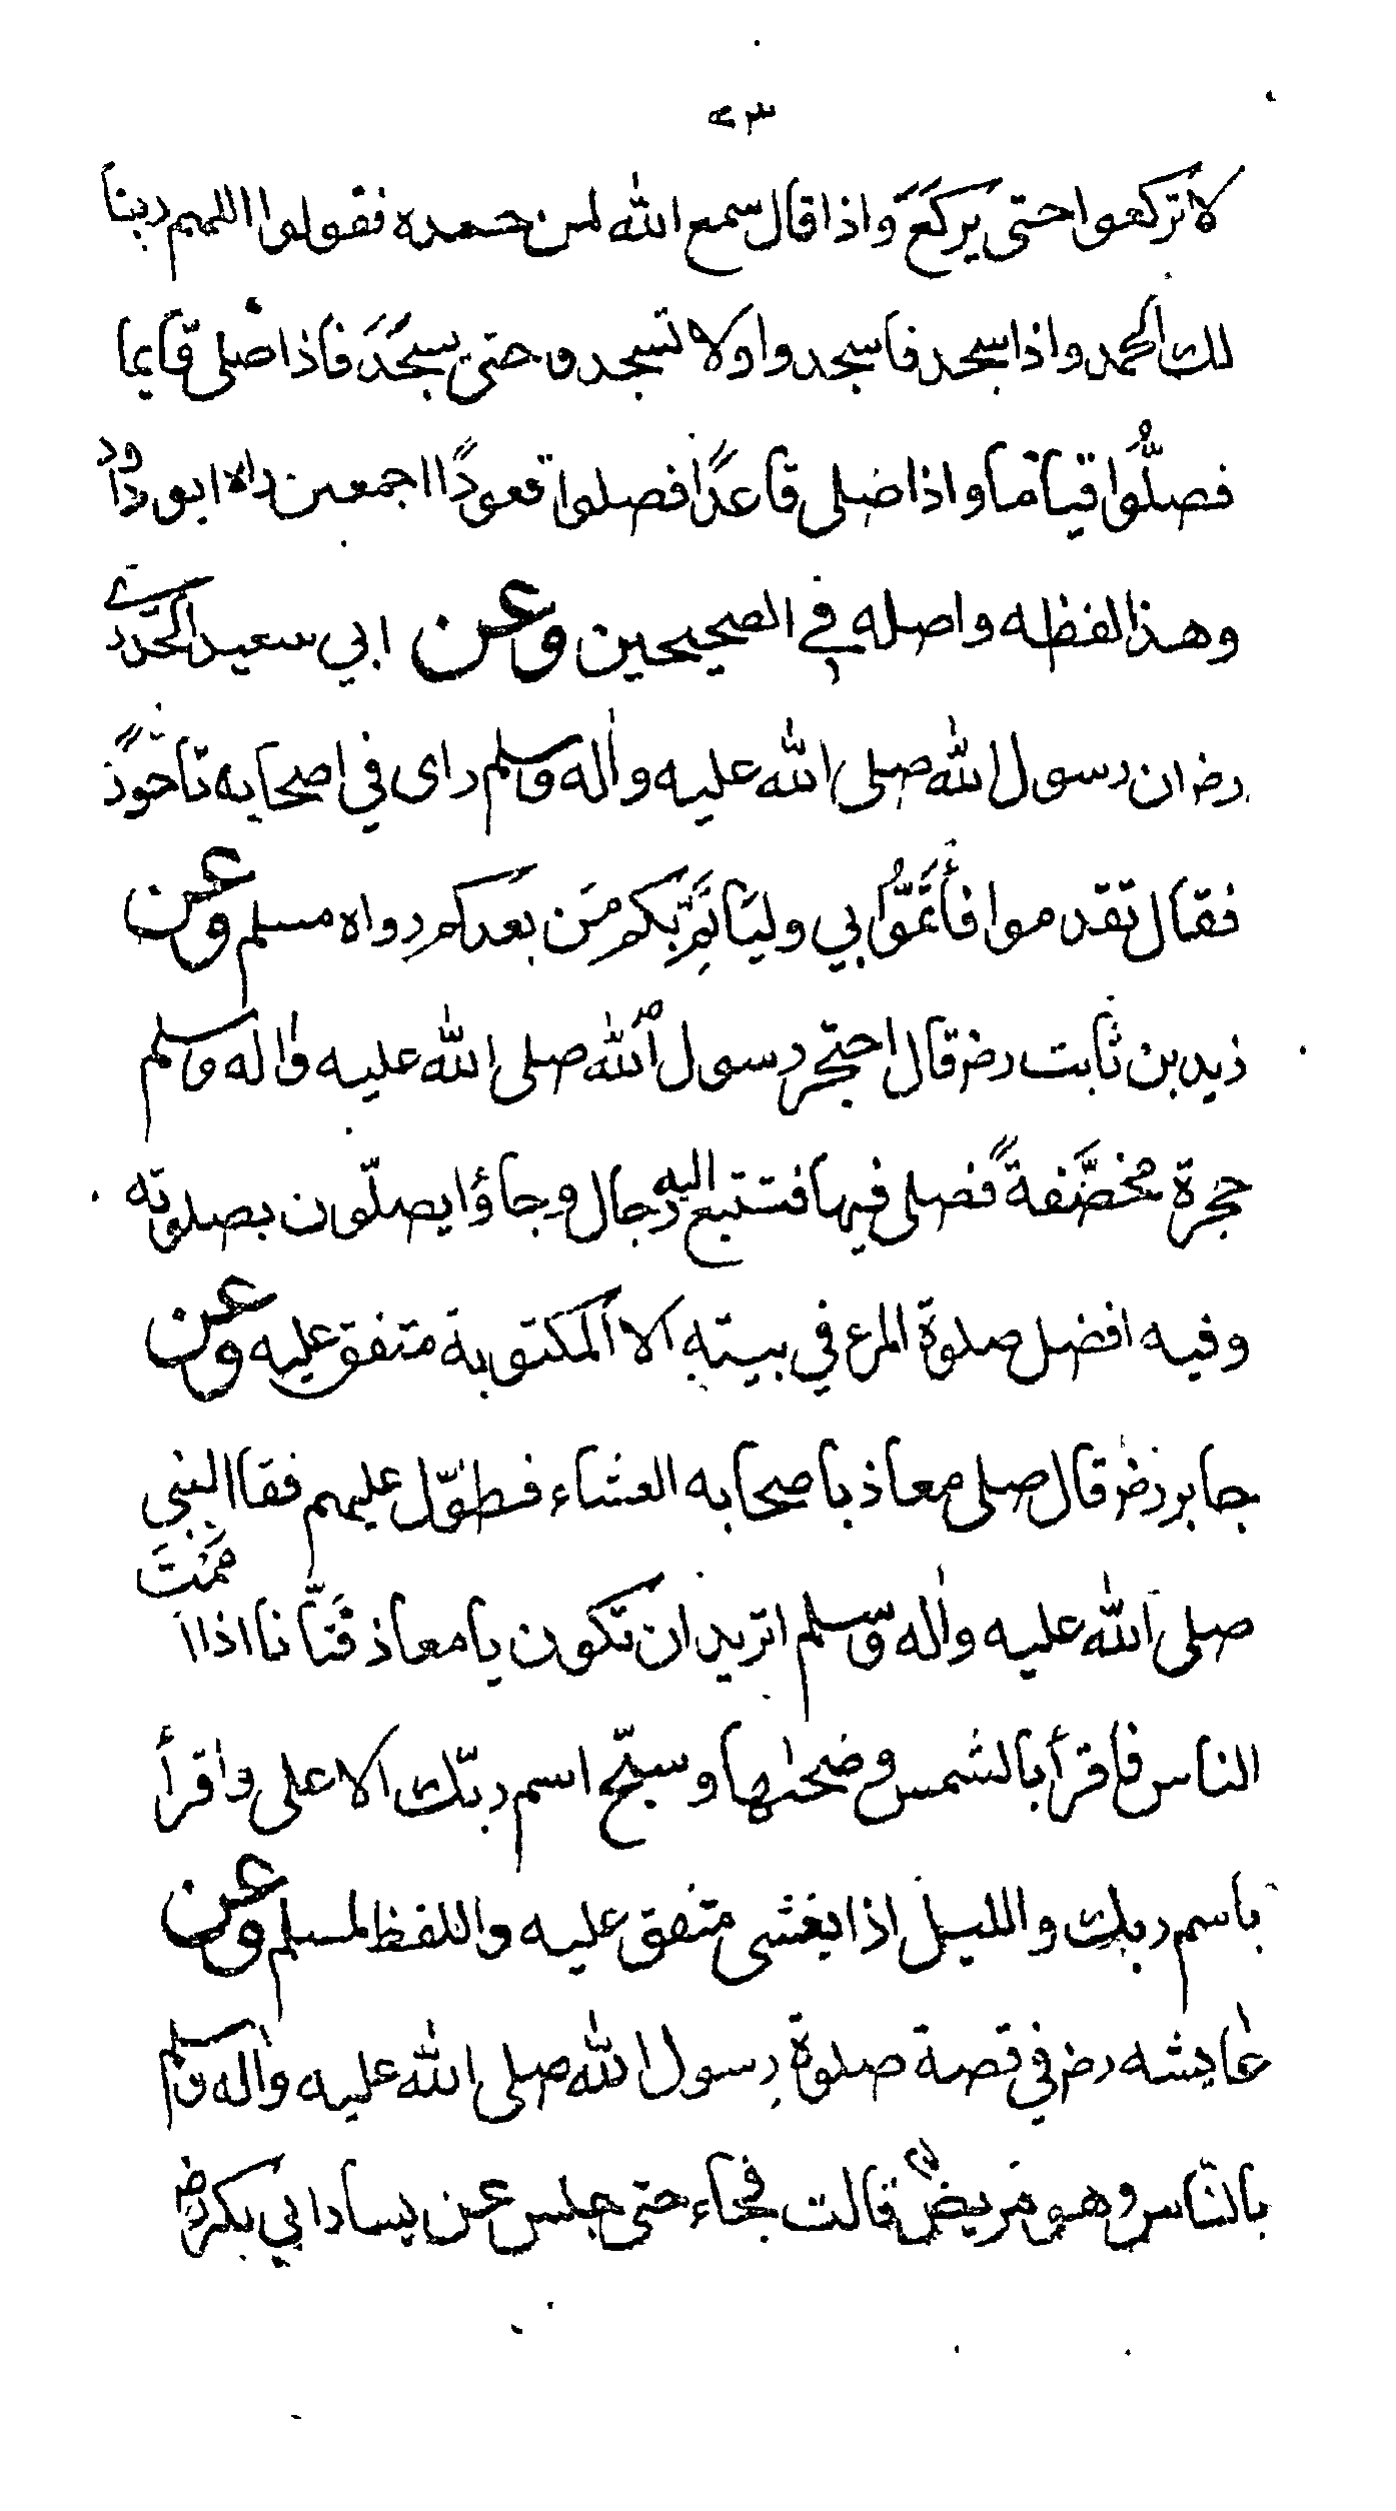 ٢٣
لا تركعوا حتى يركَعَ واذا قال سمع الله لمن حمده فقولوا اللهم ربنا
لك الحمد واذا سجد فاسجدوا ولا تسجدو حتى يسجُدَ فاذا صلى قايما
فصلُّوا قياما واذا صلى قاعدًا فصلوا قعودًا اجمعين رواه ابو داود
وهذا لفظه واصله في الصحيحين وعن ابي سعيد الخدري
رض ان رسول الله صلى الله عليه واله وسلم راى في اصحابه تاخرًا
فقال تقدموا فأتمُّوا بي وليَاتَمَّ بكم مَن بعدكم رواه مسلم وعن
زيد بن ثابت رض قال احتجر رسول الله صلى الله عليه واله وسلم
حجرة مخصَّفةً فصلى فيها فتتبع اليه رجال وجاؤا يصلّون بصلوته
وفيه افضل صلوة المرء في بيته الا المكتوبة متفق عليه وعن
جابر رض قال صلى معاذ باصحابه العشاء فطوّل عليهم فقا النبي
صلى الله عليه واله وسلم اتريد ان تكون يا معاذ فتّانا اذا اممت
الناس فاقرأ بالشمس وضحيها وسبّح اسم ربّك الاعلى واقرأ
باسم ربك والليل اذا يغشى متفق عليه واللفظ لمسلم وعن
عايشه رض في قصة صلوة رسول الله صلى الله عليه واله وسلم
بالنّاس وهو مَريضٌ قالت فجاء حتى جلس عن يسار ابي بكر رض